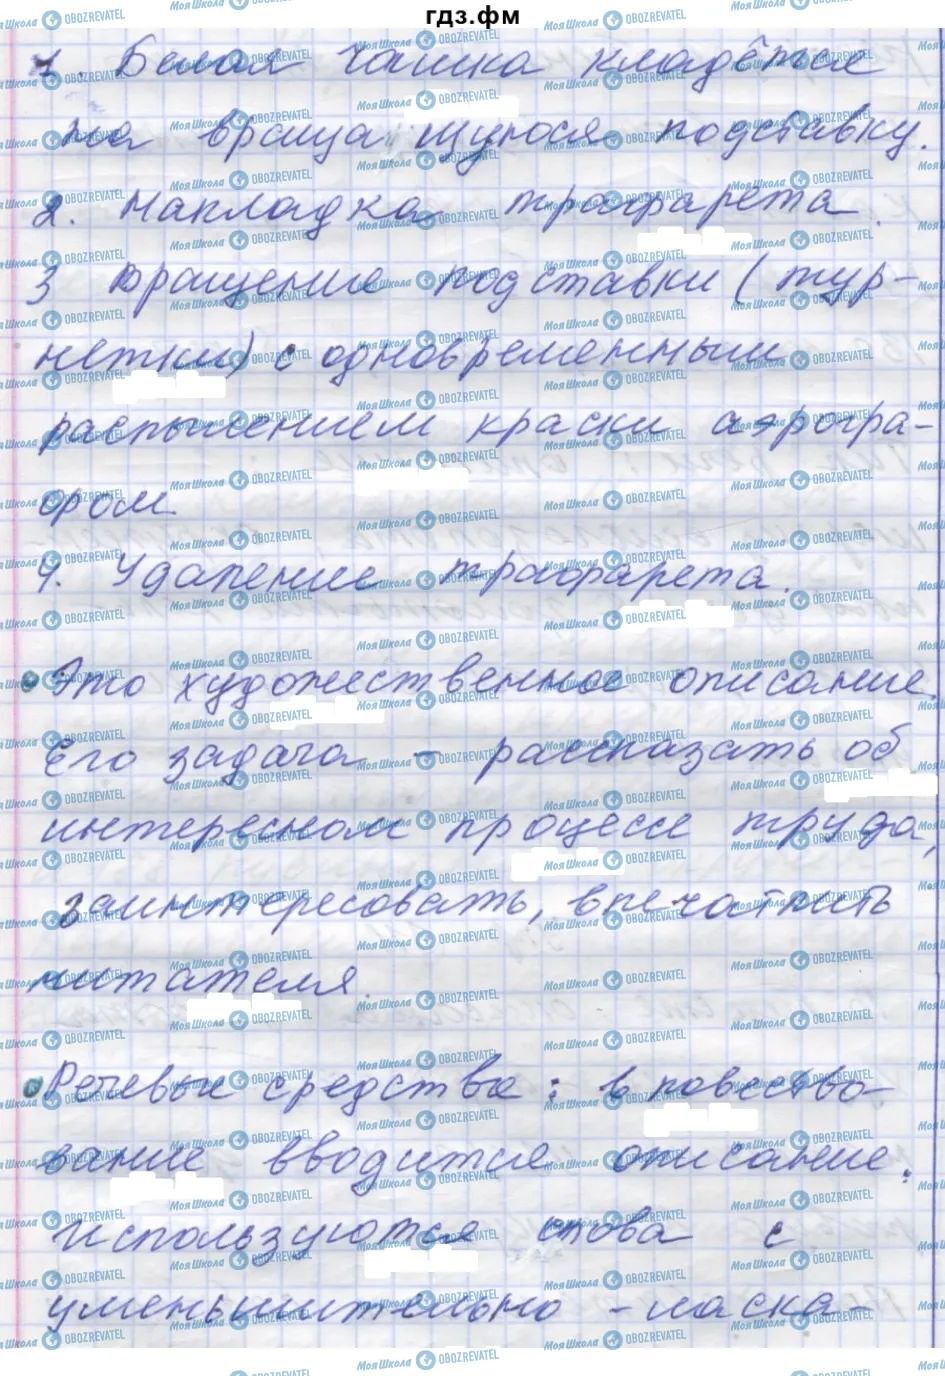 гдз.фм
1. Белая чашка кладётся
на враща щуюся подставку.
2. Накладка трафарета.
3 Вращение подставки (тур-
нетки) с одновременным
распылением краски аэрогра-
фом
4. Удаление трафарета.
Это художественное описание.
Его задача - рассказать об
интересном процессе труда,
заинтересовать, впечатлить
читателя.
Речевые средства: в повество-
вание вводится описание.
используются слова с
уменьшительно - ласка-
МояШкола OBOZREVATEL